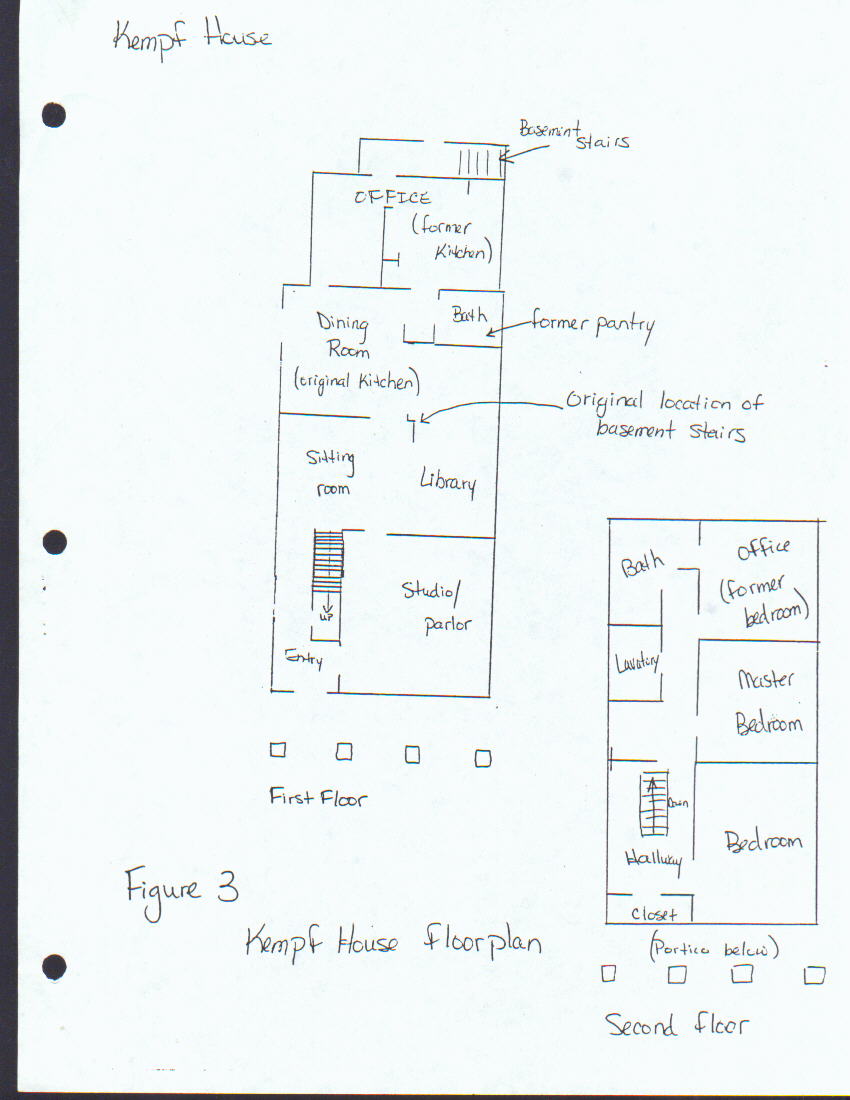 Kempf House
Basemint
stairs
OFFICE
(former
Kitchen)
Bath
former pantry
Dining
Room
(original Kitchen)
Original location of
basement stairs
Sitting
room
Library
Studio/
parlor
UP
Entry
First Floor
Bath
Office
(former
bedroom)
Lavatory
Master
Bedroom
Down
Bedroom
Hallway
Closet
(Portico below)
Second floor
Figure 3
Kempf House floorplan